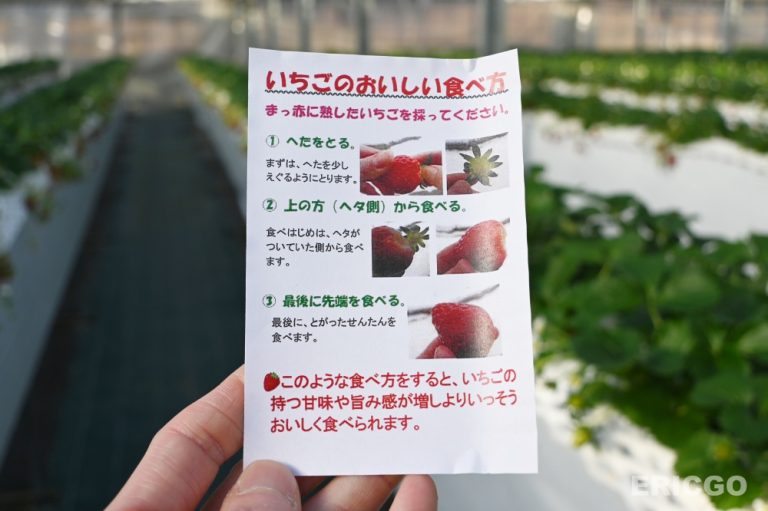 いちごのおいしい食べ方
まっ赤に熟したいちごを採ってください。
① へたをとる。
まずは、へたを少し
えぐるようにとります。
② 上の方（ヘタ側）から食べる。
食べはじめは、ヘタが
ついていた側から食べ
ます。
③ 最後に先端を食べる。
最後に、とがったせんたんを
食べます。
このような食べ方をすると、いちごの
持つ甘味や旨み感が増しよりいっそう
おいしく食べられます。
ERICGO